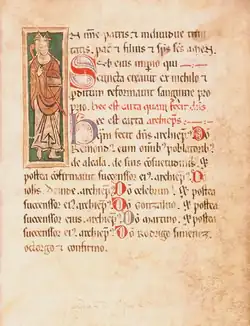 N nñe patris et individue trini
tatis. pat̃ & filius & sp̄s sc̄s amen.
Sub eius imperio qui
cuncta creavit ex nichilo &
perditum reformavit sanguine pro
prio. hec est carta quam fecit dñs
hec est carta archiep̃s
Quam fecit dñs archiep̃s Dõ
Remend̃. cum omib; poblatorib;
de alcala. de suis cosuetudinib;. Et
postea confirmavit successor ei; archiep̃s
iohs. Deinde. archiep̃s Dõ celebrun̄. Et postea
successor ei; archiep̃s Dõ Gonzaluo. Et postea
successor eius. archiep̃s Dõ martino. Et postea
successor ei; archiep̃s Dõ Rodrigo simenez
otorgo & confirmo.